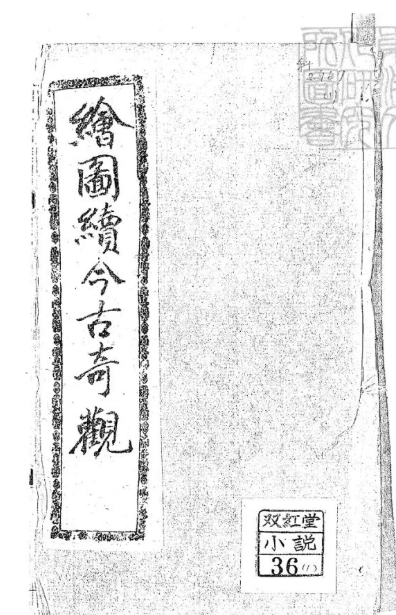 繪圖續今古奇觀
双紅堂
小説
36(1)